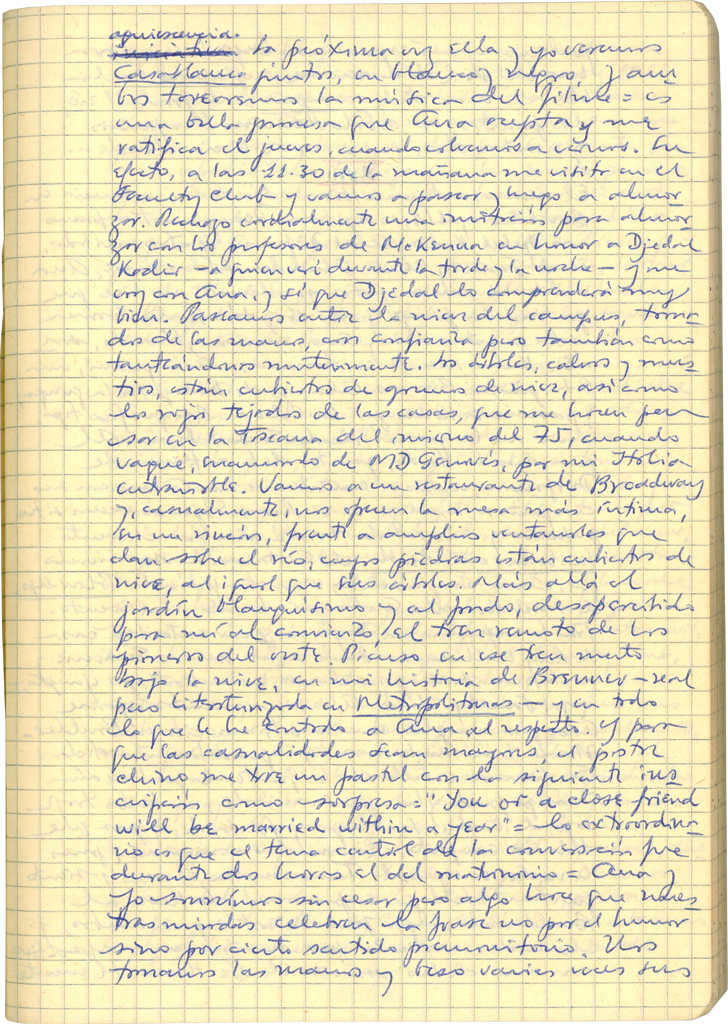 aquiescencia.
iniciativa. La próxima vez ella y yo veremos
Casablanca juntos, en blanco y negro, y am
bos tararearemos la música del filme = es
una bella promesa que Ana acepta y me
ratifica el jueves, cuando volvemos a vernos. En
efecto, a las 11.30 de la mañana me visita en el
Faculty Club y vamos a pasear y luego a almor
zar. Rechazo cordialmente una invitación para almor
zar con los profesores de McKenna en honor a Djedal
Kadir – a quien veré durante la tarde y la noche – y me
voy con Ana, y sé que Djedal lo comprenderá muy
bien. Paseamos entre la nieve del campus, toma
dos de las manos, con confianza pero también como
tanteándonos mutuamente. Los árboles, calvos y mus
tios, están cubiertos de grumos de nieve, así como
los rojos tejados de las casas, que me hacen pen
sar en la Toscana del invierno del 75, cuando
vagué, enamorado de MD Genovés, por mi Italia
entrañable. Vamos a un restaurante de Broadway
y, casualmente, nos ofrecen la mesa más íntima,
en un rincón, frente a amplios ventanales que
dan sobre el río, cuyas piedras están cubiertas de
nieve, al igual que sus árboles. Más allá el
jardín blanquísimo y al fondo, desapercibido
para mí al comienzo, el tren remoto de los
pioneros del oeste. Pienso en ese tren muerto
bajo la nieve, en mi historia de Brenner – real
pero literaturizada en Metropolitanas – y en todo
lo que le he contado a Ana al respecto. Y para
que las casualidades sean mayores, el postre
chino me trae un pastel con la siguiente ins
cripción como sorpresa = "You or a close friend
will be married within a year" = lo extraordina
rio es que el tema central de la conversación fue
durante dos horas el del matrimonio = Ana y
yo sonreímos sin cesar pero algo hace que nues
tras miradas celebren la frase no por el humor
sino por cierto sentido premonitorio. Nos
tomamos las manos y beso varias veces sus